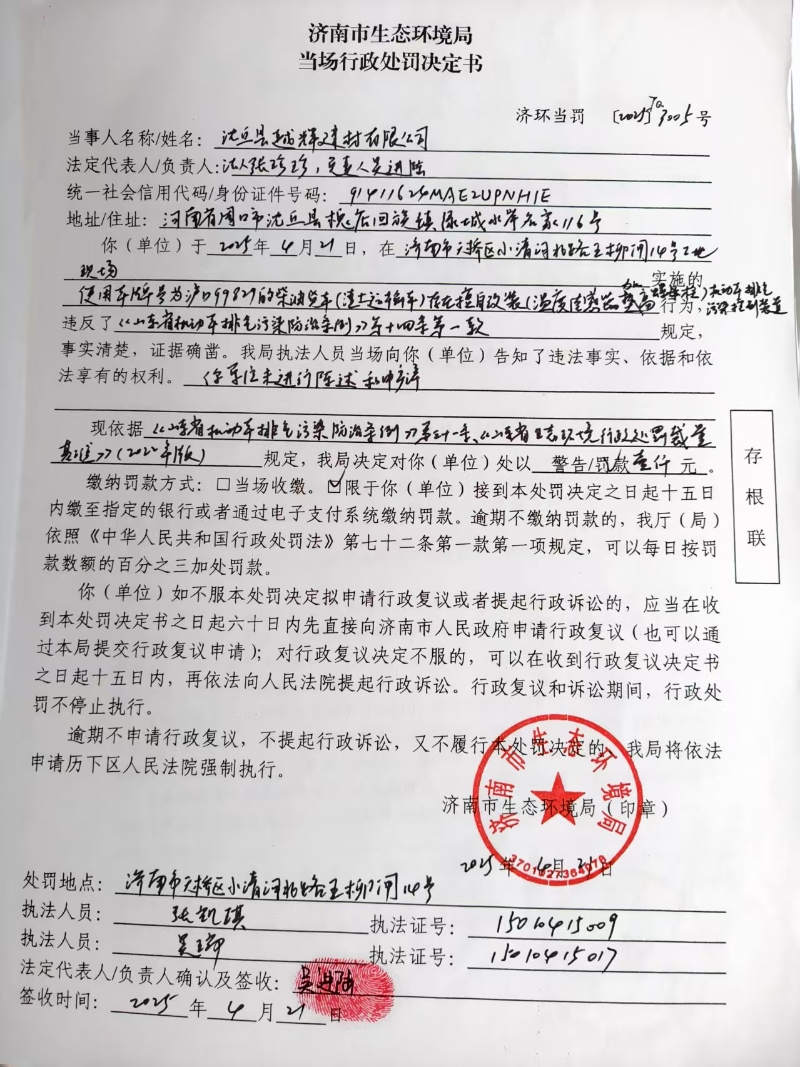 济南市生态环境局
当场行政处罚决定书
济环当罚 〔2025〕TQ3005号
当事人名称/姓名：沈丘县越辉建材有限公司
法定代表人/负责人：法人张珍珍，负责人吴进陆
统一社会信用代码/身份证件号码：91411624MAE2U9NH1E
地址/住址：河南省周口市沈丘县槐店回族镇 城水岸名家116号
你（单位）于 2025年 4月 21日，在 济南市天桥区小清河北路王柳闸14号工地
现场 实施的
使用车牌号为沪 99829的柴油货车（渣土运输车）存在擅自改装（温度传感器 ）机动车排气污染控制装置 行为，
违反了《山东省机动车排气污染防治条例》第十四条第一款 规定，
事实清楚，证据确凿。我局执法人员当场向你（单位）告知了违法事实、依据和依
法享有的权利。你单位未进行陈述和申辩
现依据《山东省机动车排气污染防治条例》第三十一条、《山东省生态环境行政处罚裁量
基准》（202 年版） 规定，我局决定对你（单位）处以 警告/罚款壹仟 元。
缴纳罚款方式：□当场收缴。☑限于你（单位）接到本处罚决定之日起十五日
内缴至指定的银行或者通过电子支付系统缴纳罚款。逾期不缴纳罚款的，我厅（局）
依照《中华人民共和国行政处罚法》第七十二条第一款第一项规定，可以每日按罚
款数额的百分之三加处罚款。
你（单位）如不服本处罚决定拟申请行政复议或者提起行政诉讼的，应当在收
到本处罚决定书之日起六十日内先直接向济南市人民政府申请行政复议（也可以通
过本局提交行政复议申请）；对行政复议决定不服的，可以在收到行政复议决定书
之日起十五日内，再依法向人民法院提起行政诉讼。行政复议和诉讼期间，行政处
罚不停止执行。
逾期不申请行政复议，不提起行政诉讼，又不履行本处罚决定的，我局将依法
申请历下区人民法院强制执行。
存根联
济南市生态环境局（印章）
济南市生态环境局
2025年 4月 21日
处罚地点：济南市天桥区小清河北路王柳闸14号
执法人员：张凯琪 执法证号：15010415009
执法人员：吴 执法证号：15010415017
法定代表人/负责人确认及签收：吴进陆
签收时间：2025 年 4 月 21 日